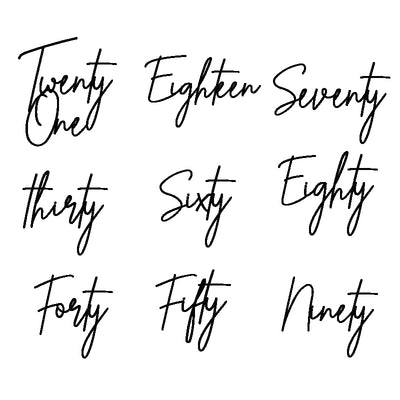 Twenty
One
Eighteen
Seventy
thirty
Sixty
Eighty
Forty
Fifty
Ninety